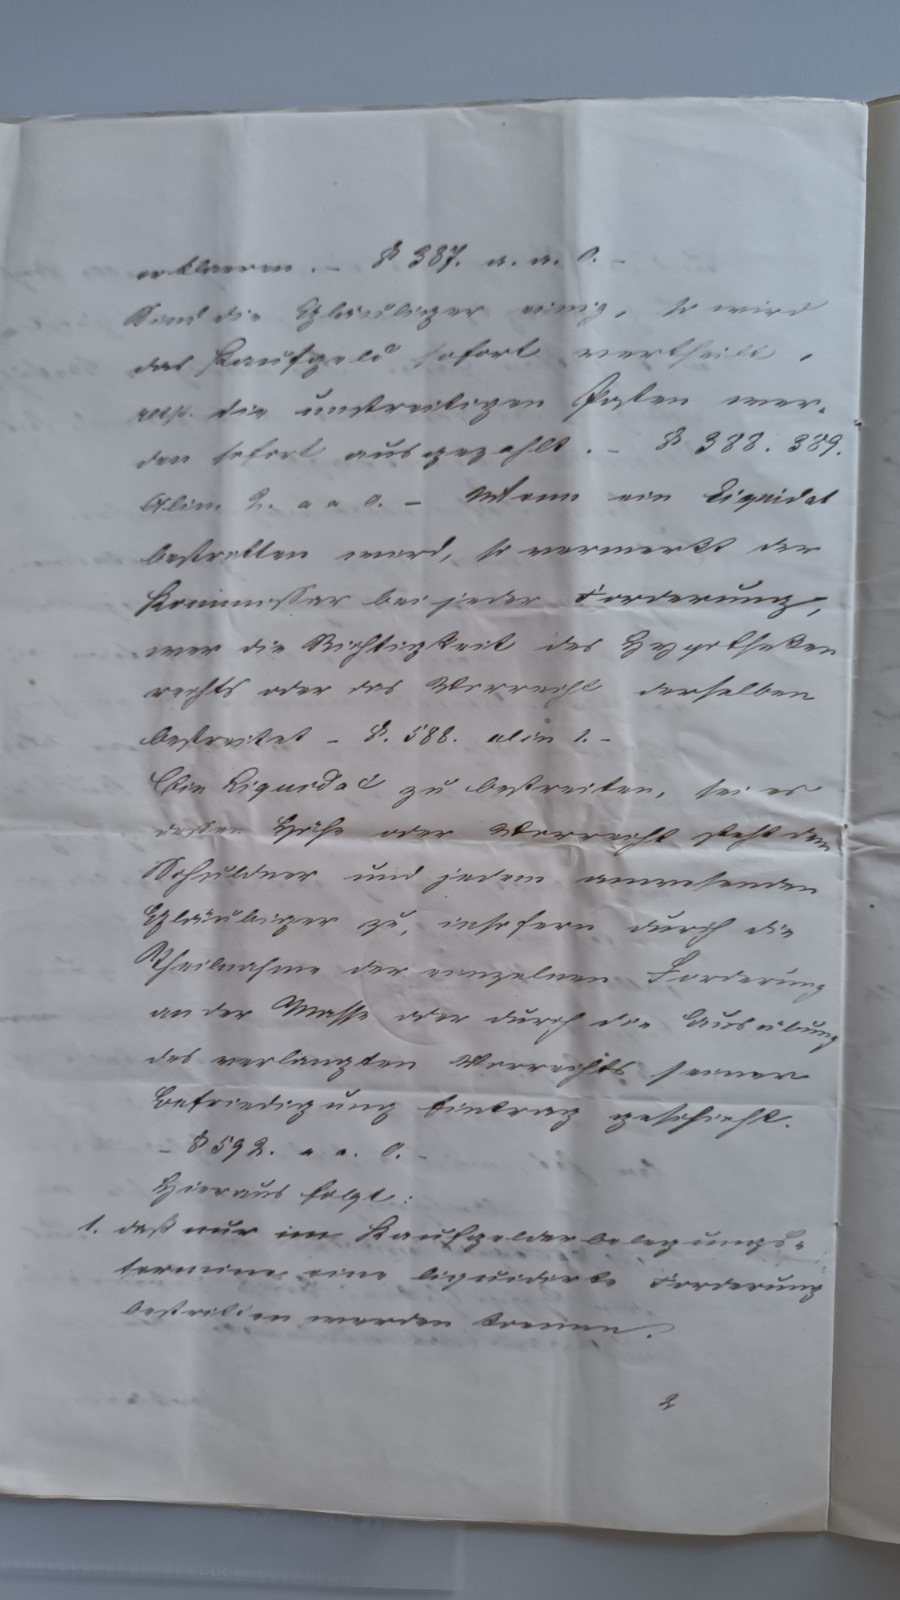 erklaeren. – § 387. a. a. O. –
Sind die Gläubiger einig, so wird
das Kaufgeld sofort vertheilt,
resp. die unstreitigen Posten wer-
den sofort ausgezahlt. – § 388. 389.
Alin. 2. a a O. – Wenn ein Liquidat
bestritten wird, so vermerkt der
Kommissar bei jeder Forderung,
wer die Richtigkeit des Hypotheken
rechts oder das Vorrecht derselben
bestreitet – §. 588. alin 1. –
Die Liquidat zu bestreiten, sei es
dessen Höhe oder Vorrecht steht dem
Schuldner und jedem anwesenden
Gläubiger zu, insofern durch die
Theilnahme der einzelnen Forderung
an der Masse oder durch die Ausübung
des verlangten Vorrechts seiner
Befriedigung Eintrag geschieht.
– § 592. a a. O. –
Hieraus folgt:
1. daß nur im Kaufgelderbelegungs-
termine eine liquidirte Forderung
bestritten werden koenne.
2